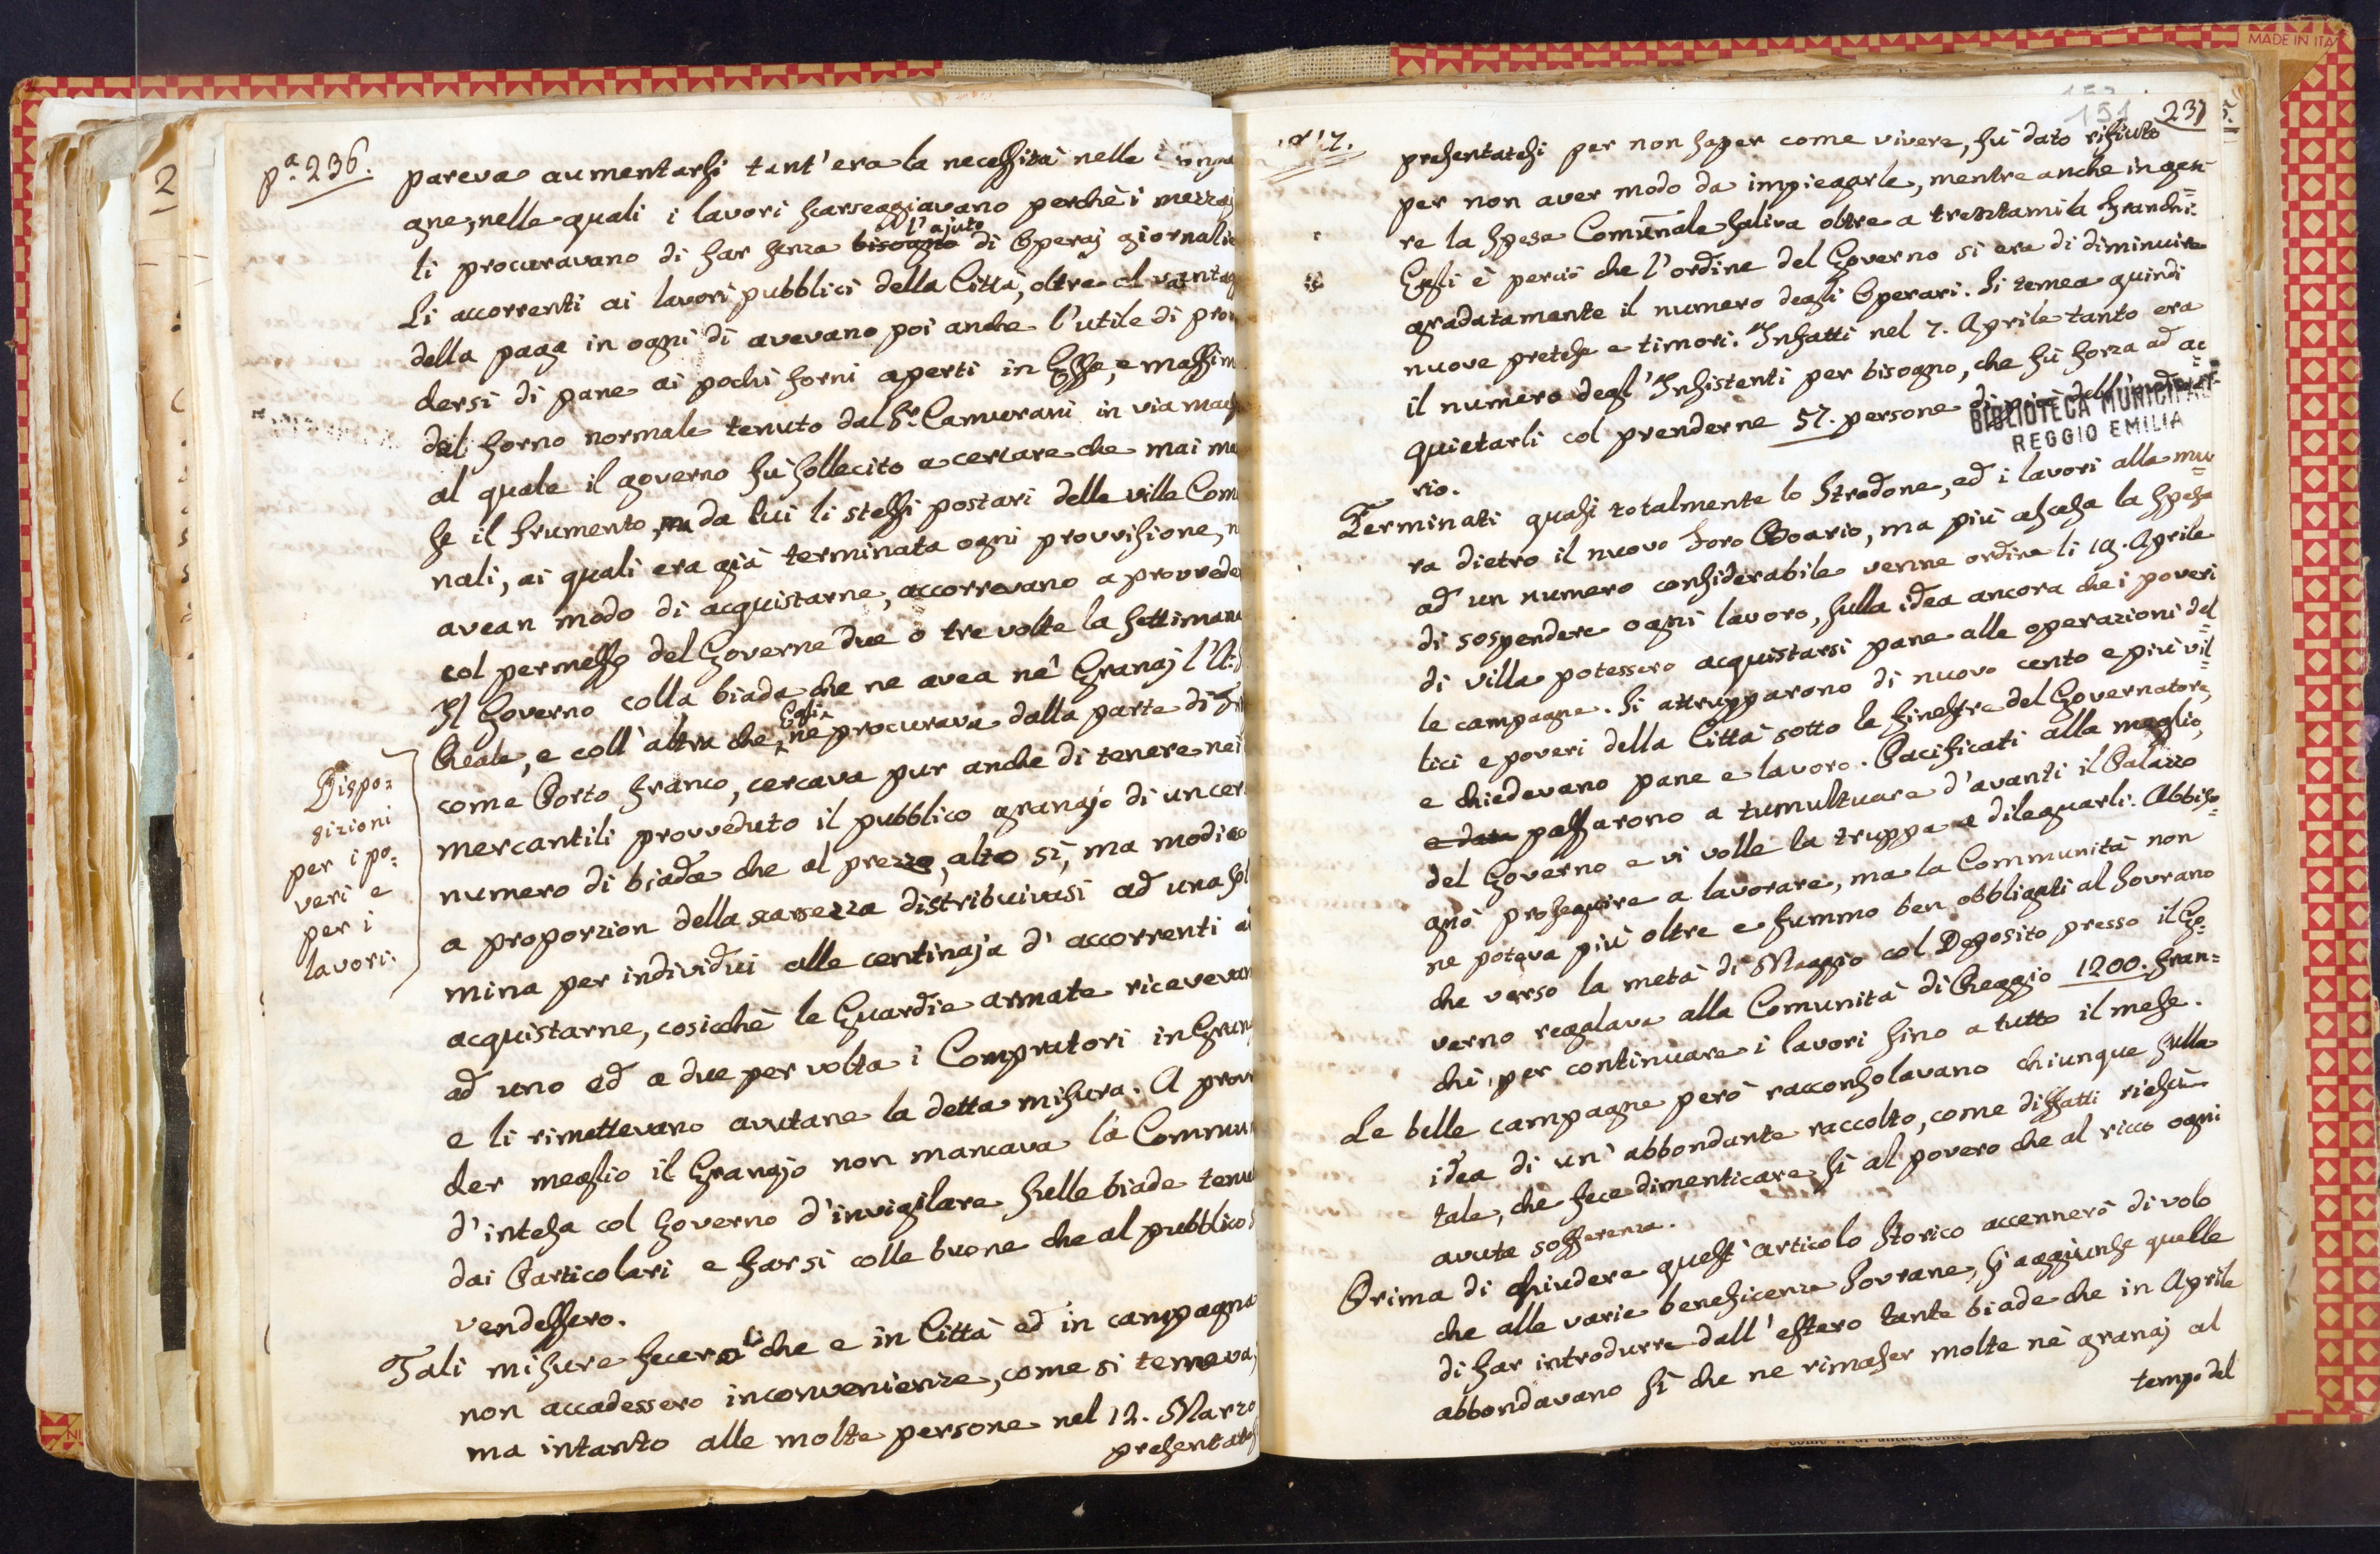 MADE IN ITA
p.ª 236.
pareva aumentarsi tant'era la necessità nelle
gne, nelle quali i lavori scarseggiavano perchè i mezzaj
li procuravano di far senza bisogno l'ajuto di Operaj giornalie
Li accorrenti ai lavori pubblici della Città, oltre al vantag
della paga in ogni dì avevano poi anche l'utile di prov
dersi di pane ai pochi forni aperti in Essa, e massim
dal forno normale tenuto dal Sr. Camurani in via maes
al quale il governo fù sollecito a cercare che mai ma
se il frumento, da lui li stessi postari delle ville Com
nali, ai quali era già terminata ogni provvisione, n
avean modo di acquistarne, accorrevano a provveder
col permesso del Governo due o tre volte la settimana
Il Governo colla biada che ne avea nè Granaj l'A. S
Reale, e coll'altra che Egli ne procurava dalla parte di
come Porto franco, cercava pur anche di tenere nei
mercantili provveduto il pubblico granajo di un cer
numero di biada che al prezzo, alto sì, ma modico
a proporzion della scarsezza distribuivasi ad una sol
mina per individui alle centinaja d'accorrenti ad
acquistarne, cosicchè le Guardie armate ricevevan
ad uno ed a due per volta i Compratori in Gran
e li rimettevano avutane la detta misura. A prov
der meglio il Granajo non mancava la Commun
d'intesa col Governo d'invigilare sulle biade tenu
dai Particolari e farsi colle buone che al pubblico
vendessero.
Tali misure fecer sì che e in Città ed in campagna
non accadessero inconvenienze, come si temeva,
ma intanto alle molte persone nel 12. Marzo
presentates
Dispo=
sizioni
per i po=
veri e
per i
lavori.
151 237
presentatesi per non saper come vivere, fù dato rifiuto
per non aver modo da impiegarle, mentre anche in gen=
re la spesa Comunale saliva oltre a trentamila franchi.
Egli è perciò che l'ordine del Governo si era di diminuire
gradatamente il numero degli Operari. Si temea quindi
nuove pretese e timori. Infatti nel 7. Aprile tanto era
il numero degl'Insistenti per bisogno, che fù forza ad ac=
quietarli col prenderne 57. persone di più dell'ordina=
rio.
BIBLIOTECA MUNICIPALE
REGGIO EMILIA
Terminati quasi totalmente lo Stradone, ed i lavori alla mu=
ra dietro il nuovo Foro Boario, ma più ascesa la spesa
ad un numero considerabile venne ordine li 19. Aprile
di sospendere ogni lavoro, sulla idea ancora che i poveri
di villa potessero acquistarsi pane alle operazioni del=
le campagne. Si attrupparono di nuovo cento e più vil=
lici e poveri della Città sotto le finestre del Governatore,
e chiedevano pane e lavoro. Pacificati alla meglio,
passarono a tumultuare d'avanti il Palazzo
del Governo e vi volle la truppa a dileguarli. Abbiso=
gnò proseguire a lavorare, ma la Communità non
ne poteva più oltre e fummo ben obbligati al Sovrano
che verso la metà di Maggio col Deposito presso il Go=
verno regalava alla Comunità di Reggio 1200. fran=
chi, per continuare i lavori fino a tutto il mese.
Le belle campagne però racconsolavano chiunque sulla
idea di un'abbondante raccolto, come diffatti riescì
tale, che fece dimenticare sì al povero che al ricco ogni
avuta sofferenza.
Prima di chiudere quest'articolo Storico accennerò di volo
che alle varie beneficenze Sovrane, s'aggiunse quelle
di far introdurre dall'estero tante biade che in Aprile
abbondavano sì che ne rimaser molte nè granaj al
tempo del